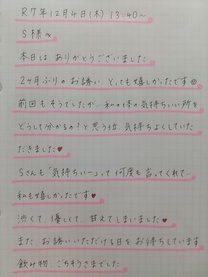 R7年12月4日(木) 13:40〜
S様へ
本日は ありがとうございました
2ヶ月ぶりのお誘い とっても嬉しかったです☺
前回もそうでしたが、私の体の気持ちいい所を
どうして分かるの?と思う位 気持ちよくしていた
だきました♥
Sさんも「気持ちいー」って何度も言ってくれて
私も嬉しかったです♥
渋くて、優しくて、甘えてしまいました♥
また お誘いいただける日をお待ちしています
飲み物 ごちそうさまでした